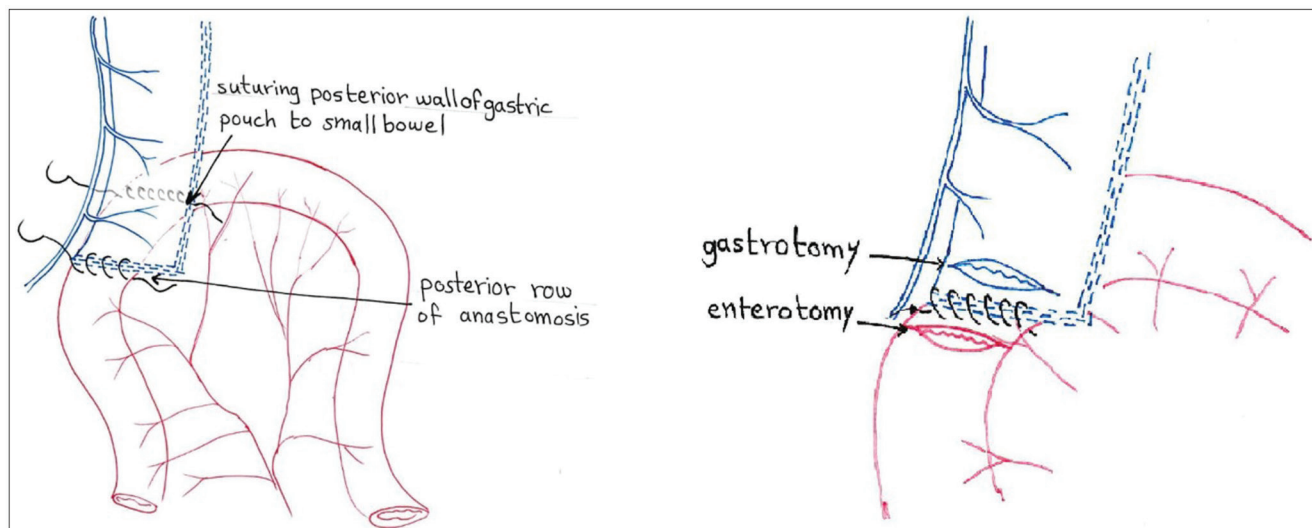 suturing posterior wall of gastric
pouch to small bowel
posterior row
of anastomosis
gastrotomy
enterotomy